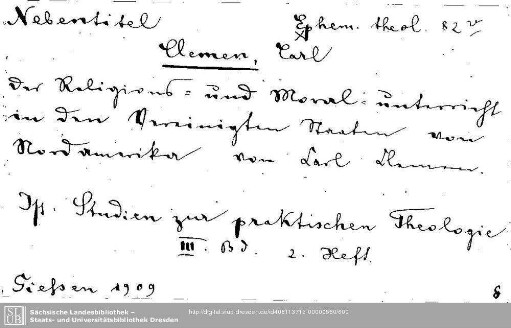 Nebentitel
Ephem. theol. 82 v
Clemen, Carl
der Religions= und Moral=unterricht
in den Vereinigten Staaten von
Nordamerika von Carl Clemen.
Jst. Studien zur praktischen Theologie
III. Bd. 2. Heft.
Giessen 1909
8
Sächsische Landesbibliothek –
Staats- und Universitätsbibliothek Dresden